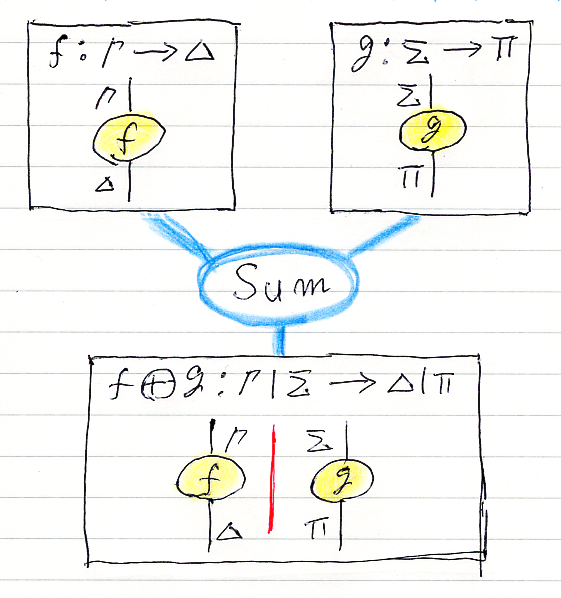 f : Γ → Δ
Γ
f
Δ
g : Σ → Π
Σ
g
Π
Sum
f ⊕ g : Γ | Σ → Δ | Π
Γ
f
Δ
Σ
g
Π